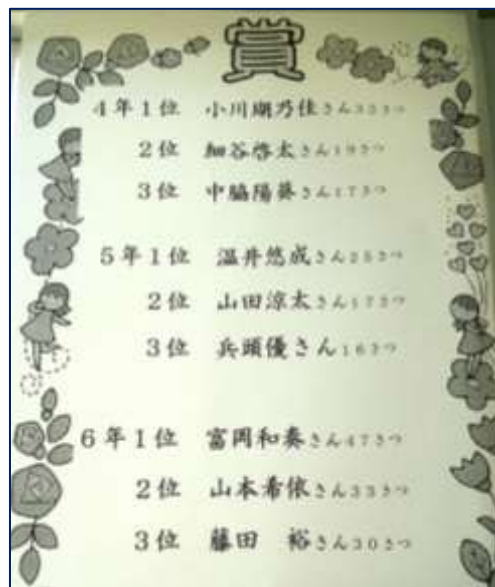 賞
4年1位 小川瑚乃佳さん33さつ
2位 細谷啓太さん19さつ
3位 中脇陽葵さん17さつ
5年1位 温井悠成さん25さつ
2位 山田涼太さん17さつ
3位 兵頭優さん16さつ
6年1位 富岡和奏さん47さつ
2位 山本希依さん33さつ
3位 藤田 裕さん30さつ